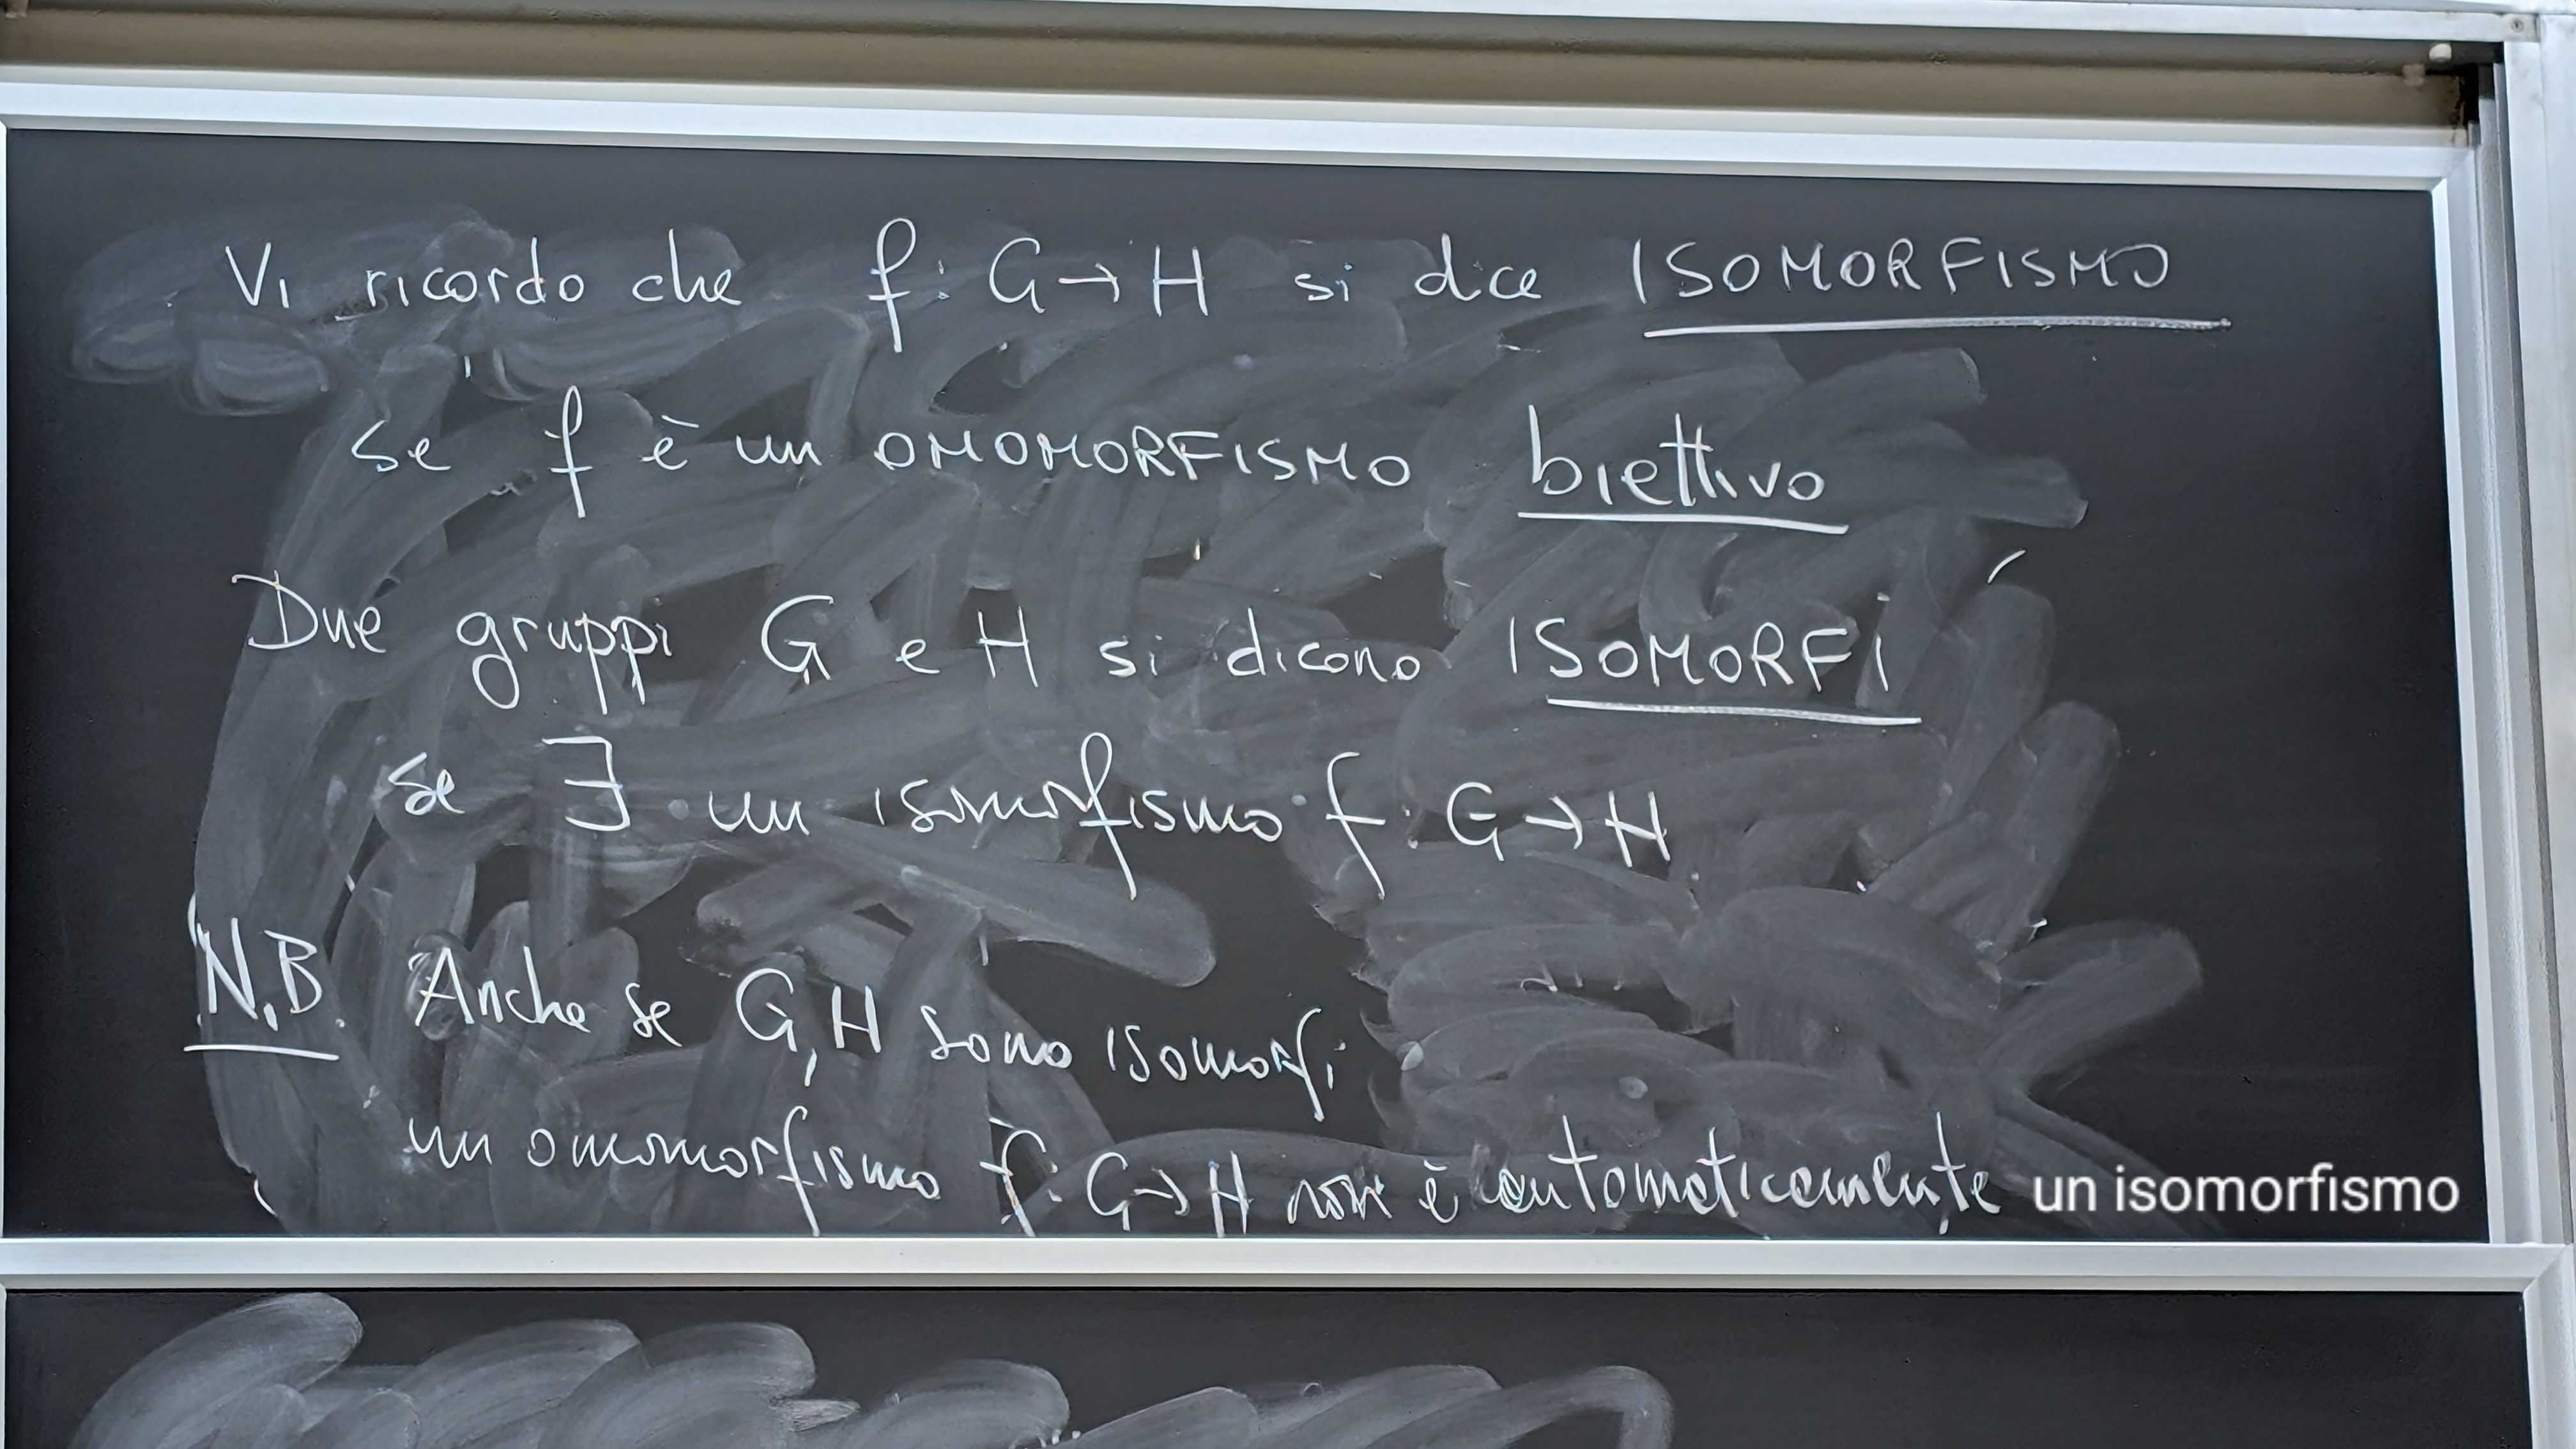 Vi ricordo che f: G → H si dice ISOMORFISMO
se f è un OMOMORFISMO biettivo
Due gruppi G e H si dicono ISOMORFI
se ∃ un isomorfismo f: G → H
N.B. Anche se G, H sono isomorfi
un omomorfismo f: G → H non è automaticamente un isomorfismo